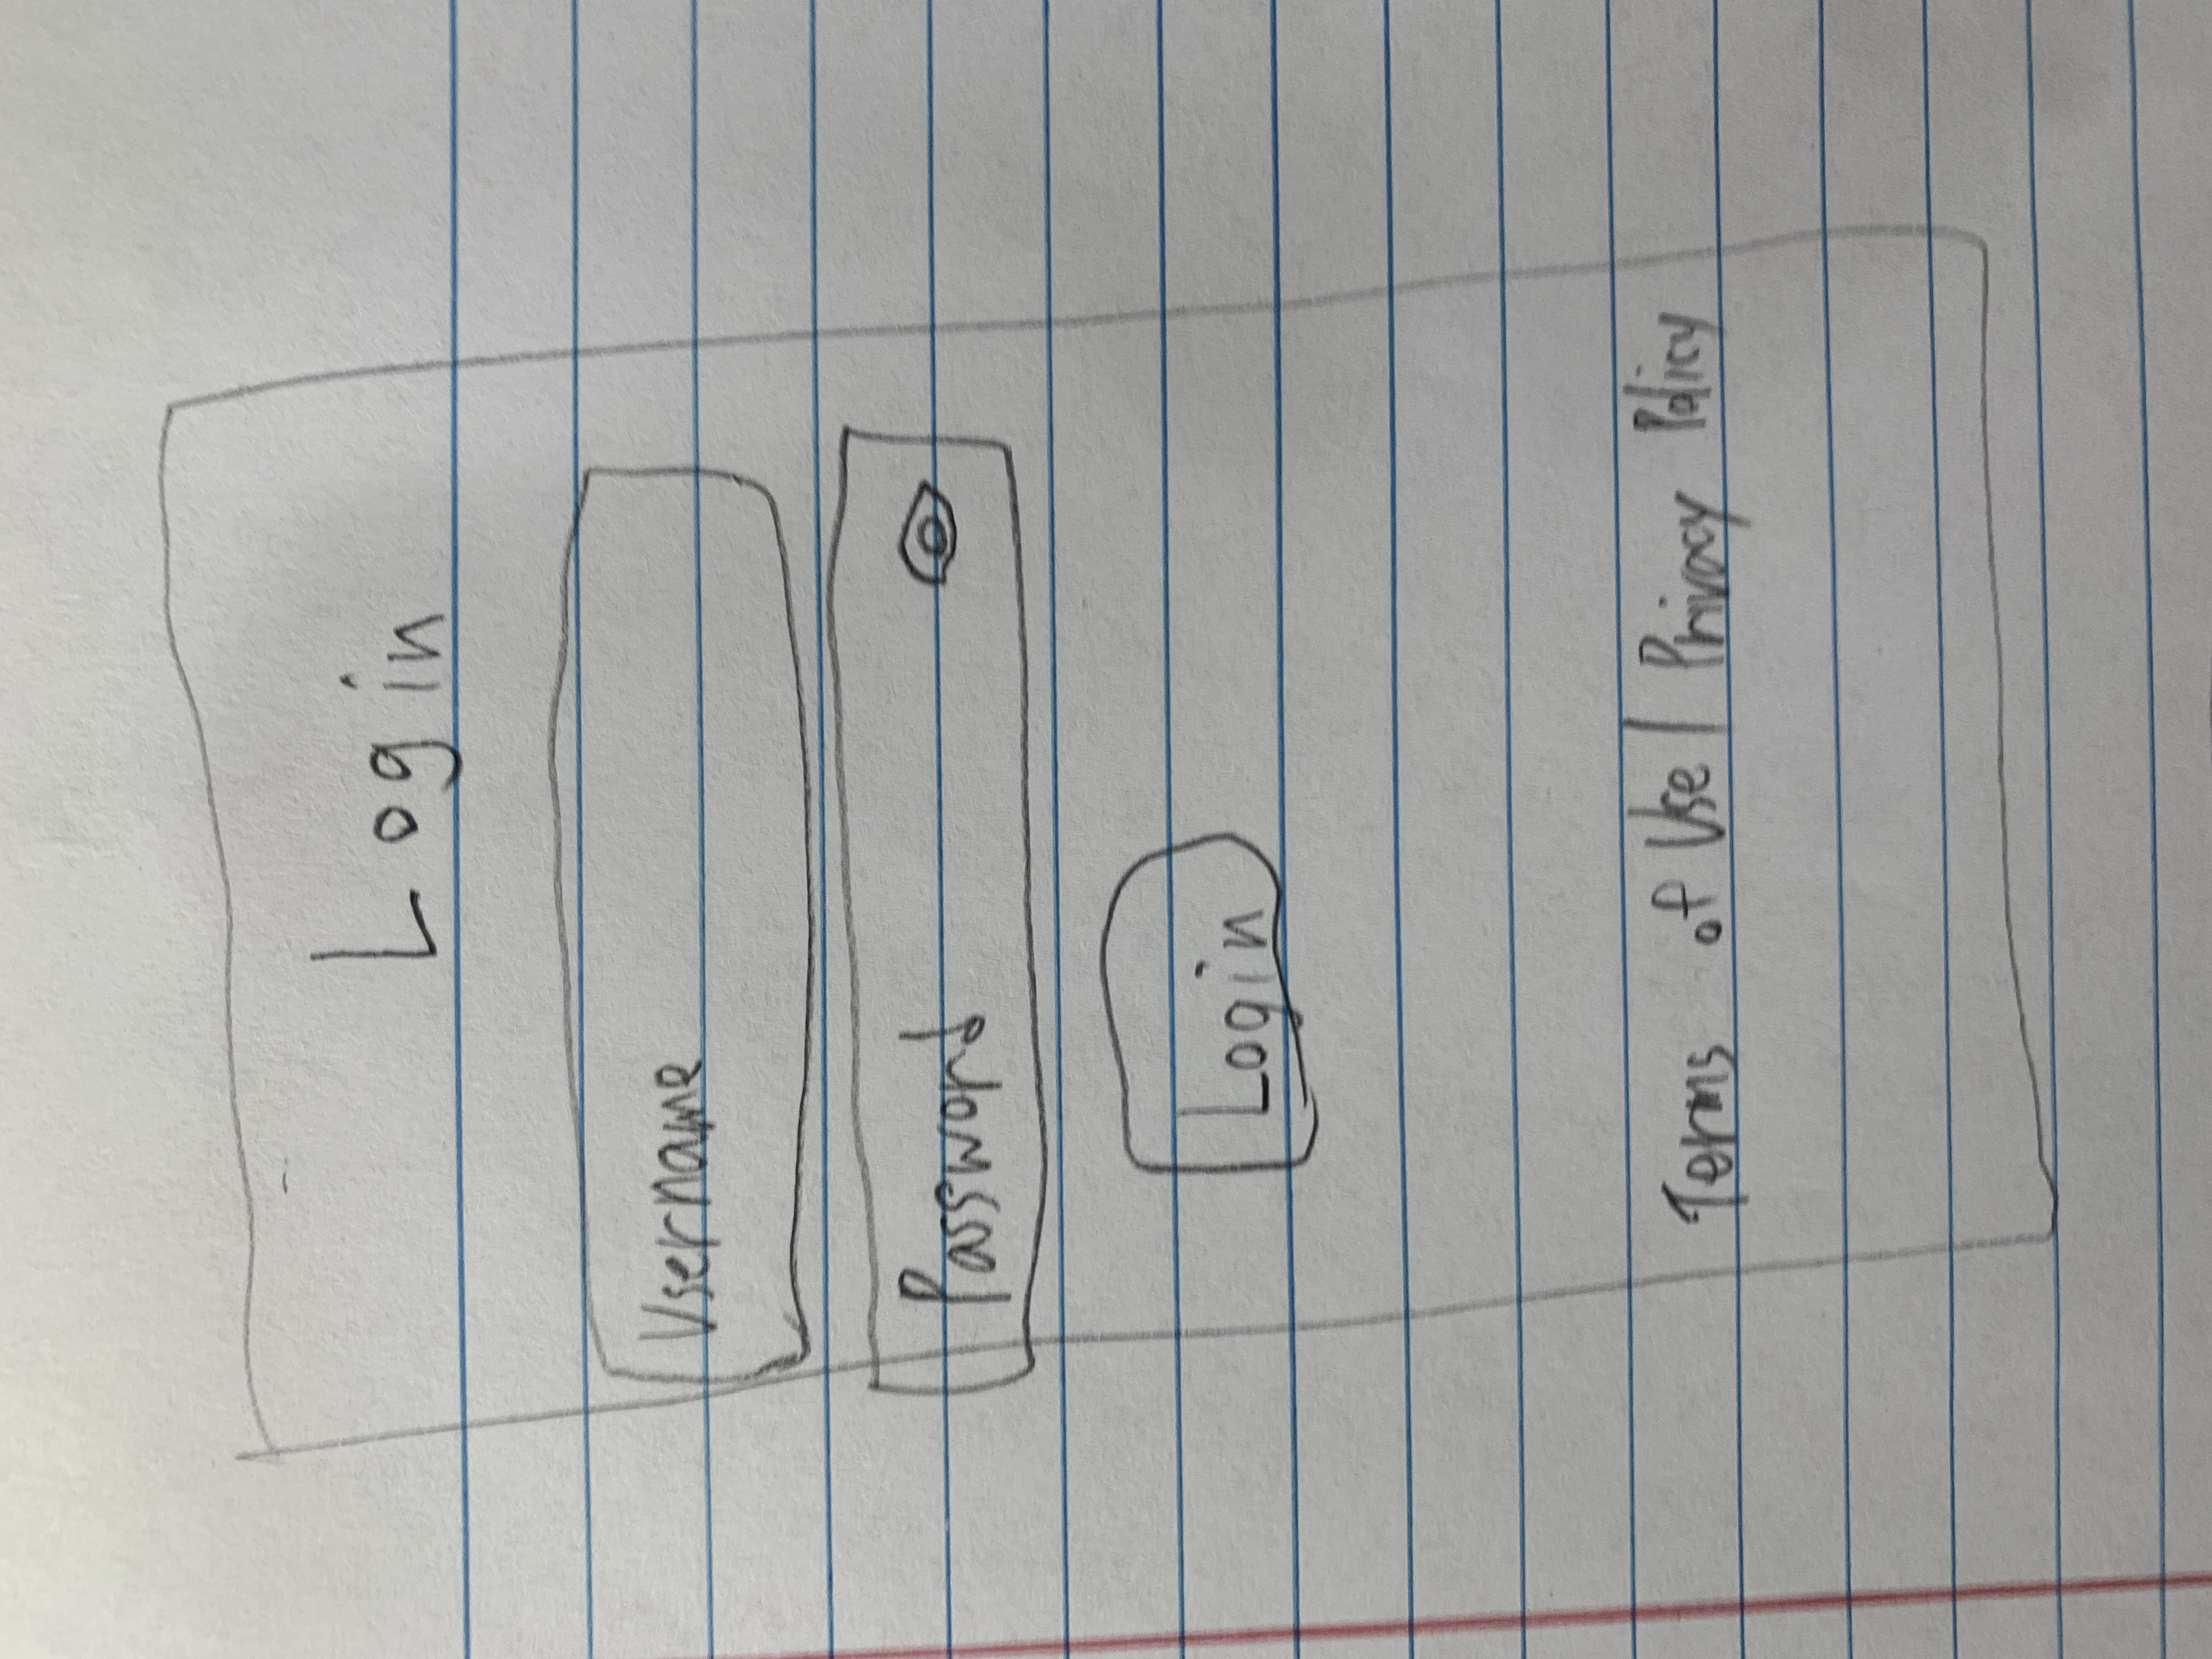 Login
Username
Password
Login
Terms of Use | Privacy Policy